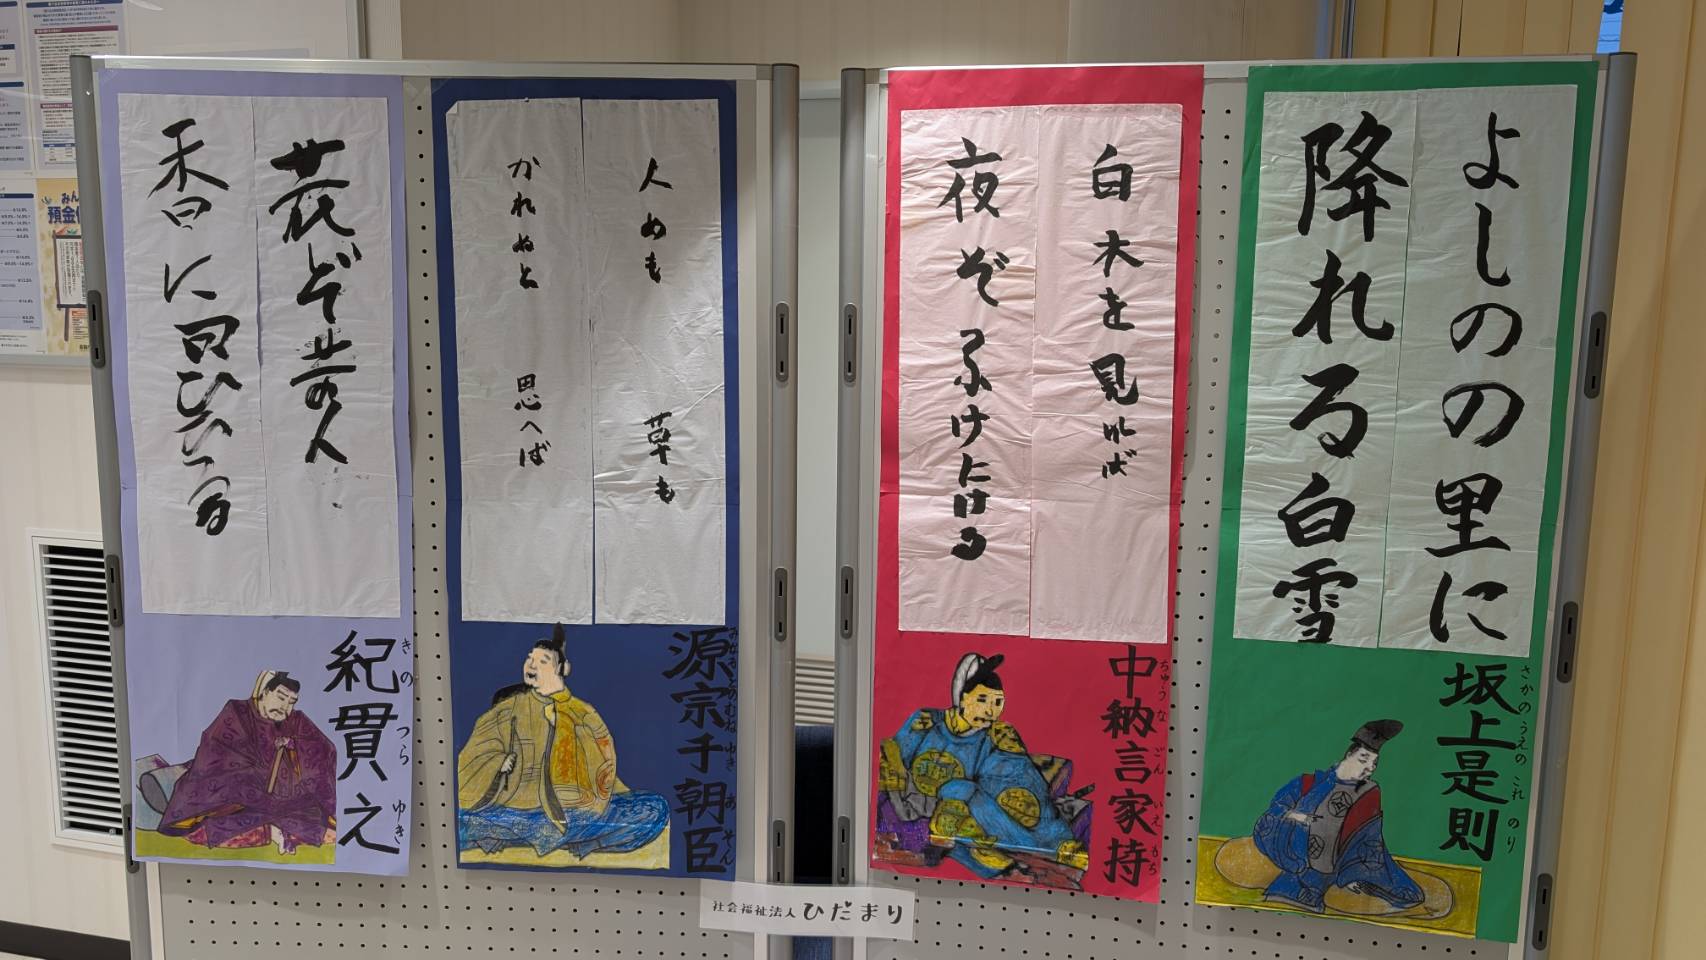 よしのの里に
降れる白雪
坂上是則
さかのうえのこれのり
白木を見れば
夜ぞふけにける
中納言家持
ちゅうなごんいえもち
人めも 草も
かれぬと 思へば
源宗千朝臣
みなもとのむねゆきあそん
花ぞ昔の人
香に匂ひける
紀貫之
きのつらゆき
社会福祉法人ひだまり
みん
預金